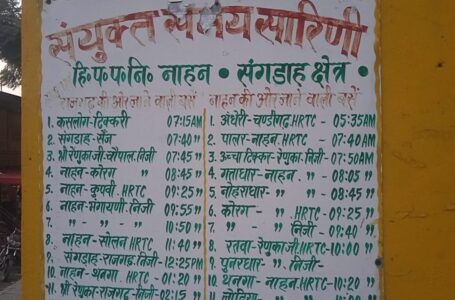 संयुक्त समय सारिणी
हि.प.प.नि. नाहन • संगडाह क्षेत्र •
राजगढ़ की ओर जाने वाली बसें
1. कसलोग-टिक्करी 07:15AM
2. संगडाह-सैंज 07:40"
3. श्री रेणुकाजी-चौपाल.निजी 07:45"
4. नाहन-कोरग " 08:45"
5. नाहन-कुपवी.HRTC 09:25"
6. नाहन-गंगायणी.निजी 09:55"
7. " " 10:50"
8. नाहन-सोलन HRTC 11:40"
9. संगडाह-राजगढ.निजी-12:25PM
10. नाहन-थनगा.HRTC-01:20"
11. श्री रेणुका-राजगढ-निजी-02:15"
नाहन की ओर जाने वाली बसें
1. अंधेरी-चण्डीगढ़.HRTC-05:35AM
2. पालर-नाहन.HRTC-07:40AM
3. ऊच्चा टिक्कर-रेणुका-निजी-07:50AM
4. गताधार-नाहन." -08:05"
5. नोहराधार-" " -08:45"
6. कोरग -" .HRTC-09:25"
7. " -" .निजी -09:40"
8. रतवा-रेणुकाजी.HRTC-10:00"
9. पुनरधार-" .निजी-
10. थनगा-नाहन.HRTC-10:20"